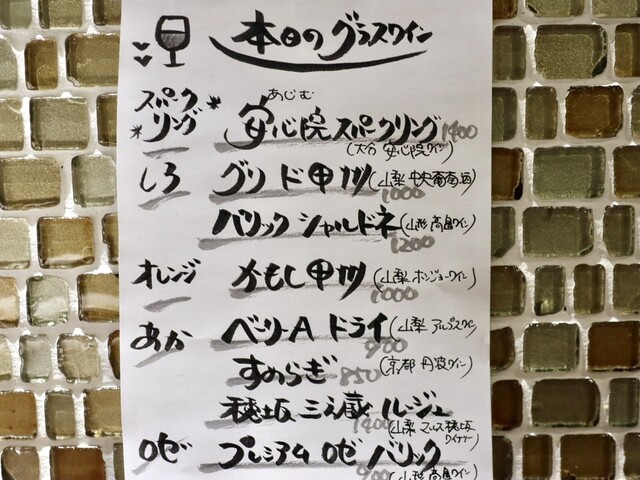 本日のグラスワイン
スパークリング
あじむ
安心院スパークリング 1400
(大分 安心院ワイン)
しろ グリド甲州 (山梨 中央葡萄酒)
1000
バリック シャルドネ (山形 高畠ワイン)
1200
オレンジ かもし甲州 (山梨 ホンジョーワイン)
1000
あか ベーリーA ドライ (山梨 アルプスワイン)
900
すのらぎ 850 (京都 丹波ワイン)
穂坂 三之蔵 ルージュ
1400 (山梨 マルス穂坂ワイナリー)
ロゼ プレミアム ロゼ バリック
900 (山形 高畠ワイン)